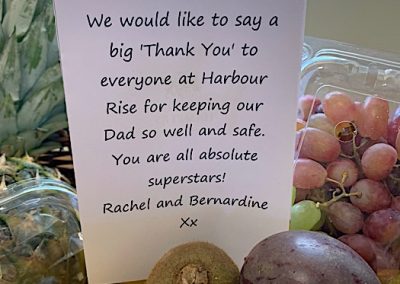 We would like to say a
big 'Thank You' to
everyone at Harbour
Rise for keeping our
Dad so well and safe.
You are all absolute
superstars!
Rachel and Bernardine
Xx